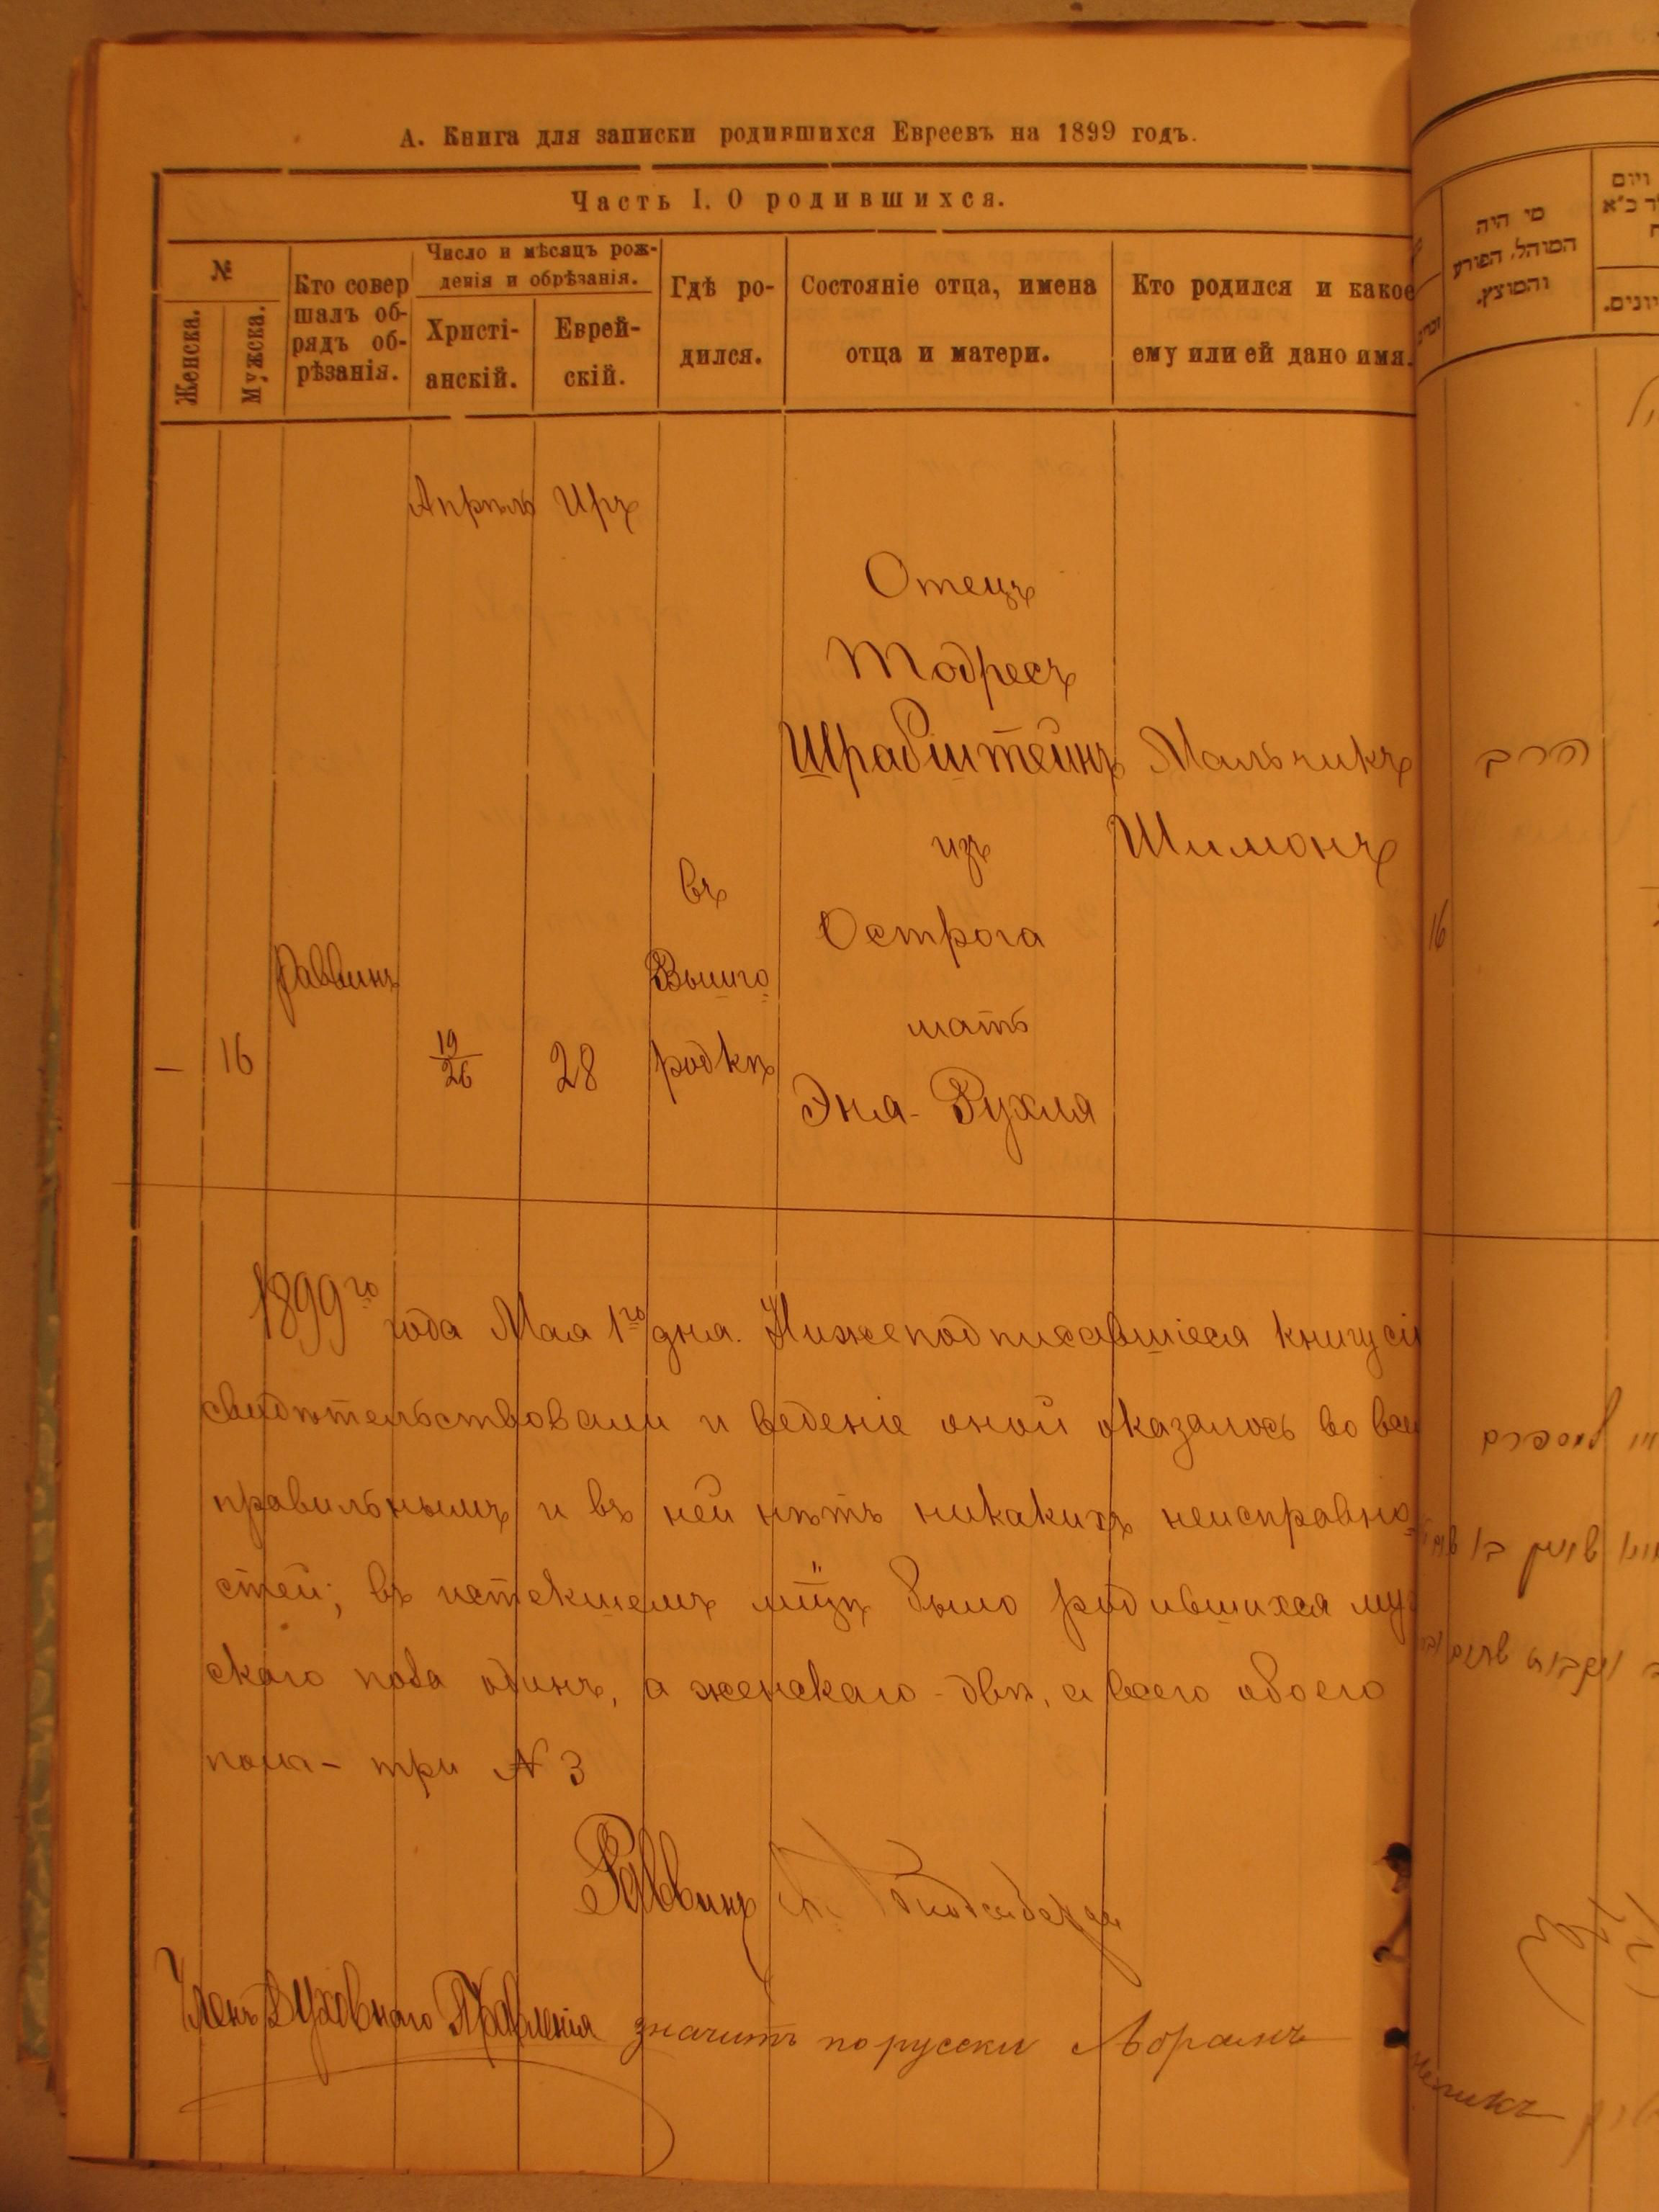 А. Книга для записки родившихся Евреевъ на 1899 годъ.
Часть I. О родившихся.
№
Женска.
Мужска.
Кто совер
шалъ об-
рядъ об-
рѣзанія.
Число и мѣсяцъ рож-
денія и обрѣзанія.
Христі-
анскій.
Еврей-
скій.
Гдѣ ро-
дился.
Состояніе отца, имена
отца и матери.
Кто родился и какое
ему или ей дано имя.
Апрѣль Иръ
Отецъ
Тодресъ
Шрабштейнъ
изъ
Острога
мать
Эня-Рухля
Мальчикъ
Шимонъ
въ
Вышго
родкѣ
Раввинъ
— 16
19
26
28
1899го года Мая 1го дня. Нижеподписавшіеся книгу сію
свидѣтельствовали и веденіе оной оказалось во всем
правильнымъ и въ ней нѣтъ никакихъ неисправно
стей; въ истекшемъ мцѣ было родившихся муж
скаго пола одинъ, а женскаго - двѣ, а всего обоего
пола - три № 3
Раввинъ
Членъ Духовнаго Правленія значитъ по русски Абрамъ
מי היה
המוהל, הפורע
והמוצץ.
ויום
16
הרב